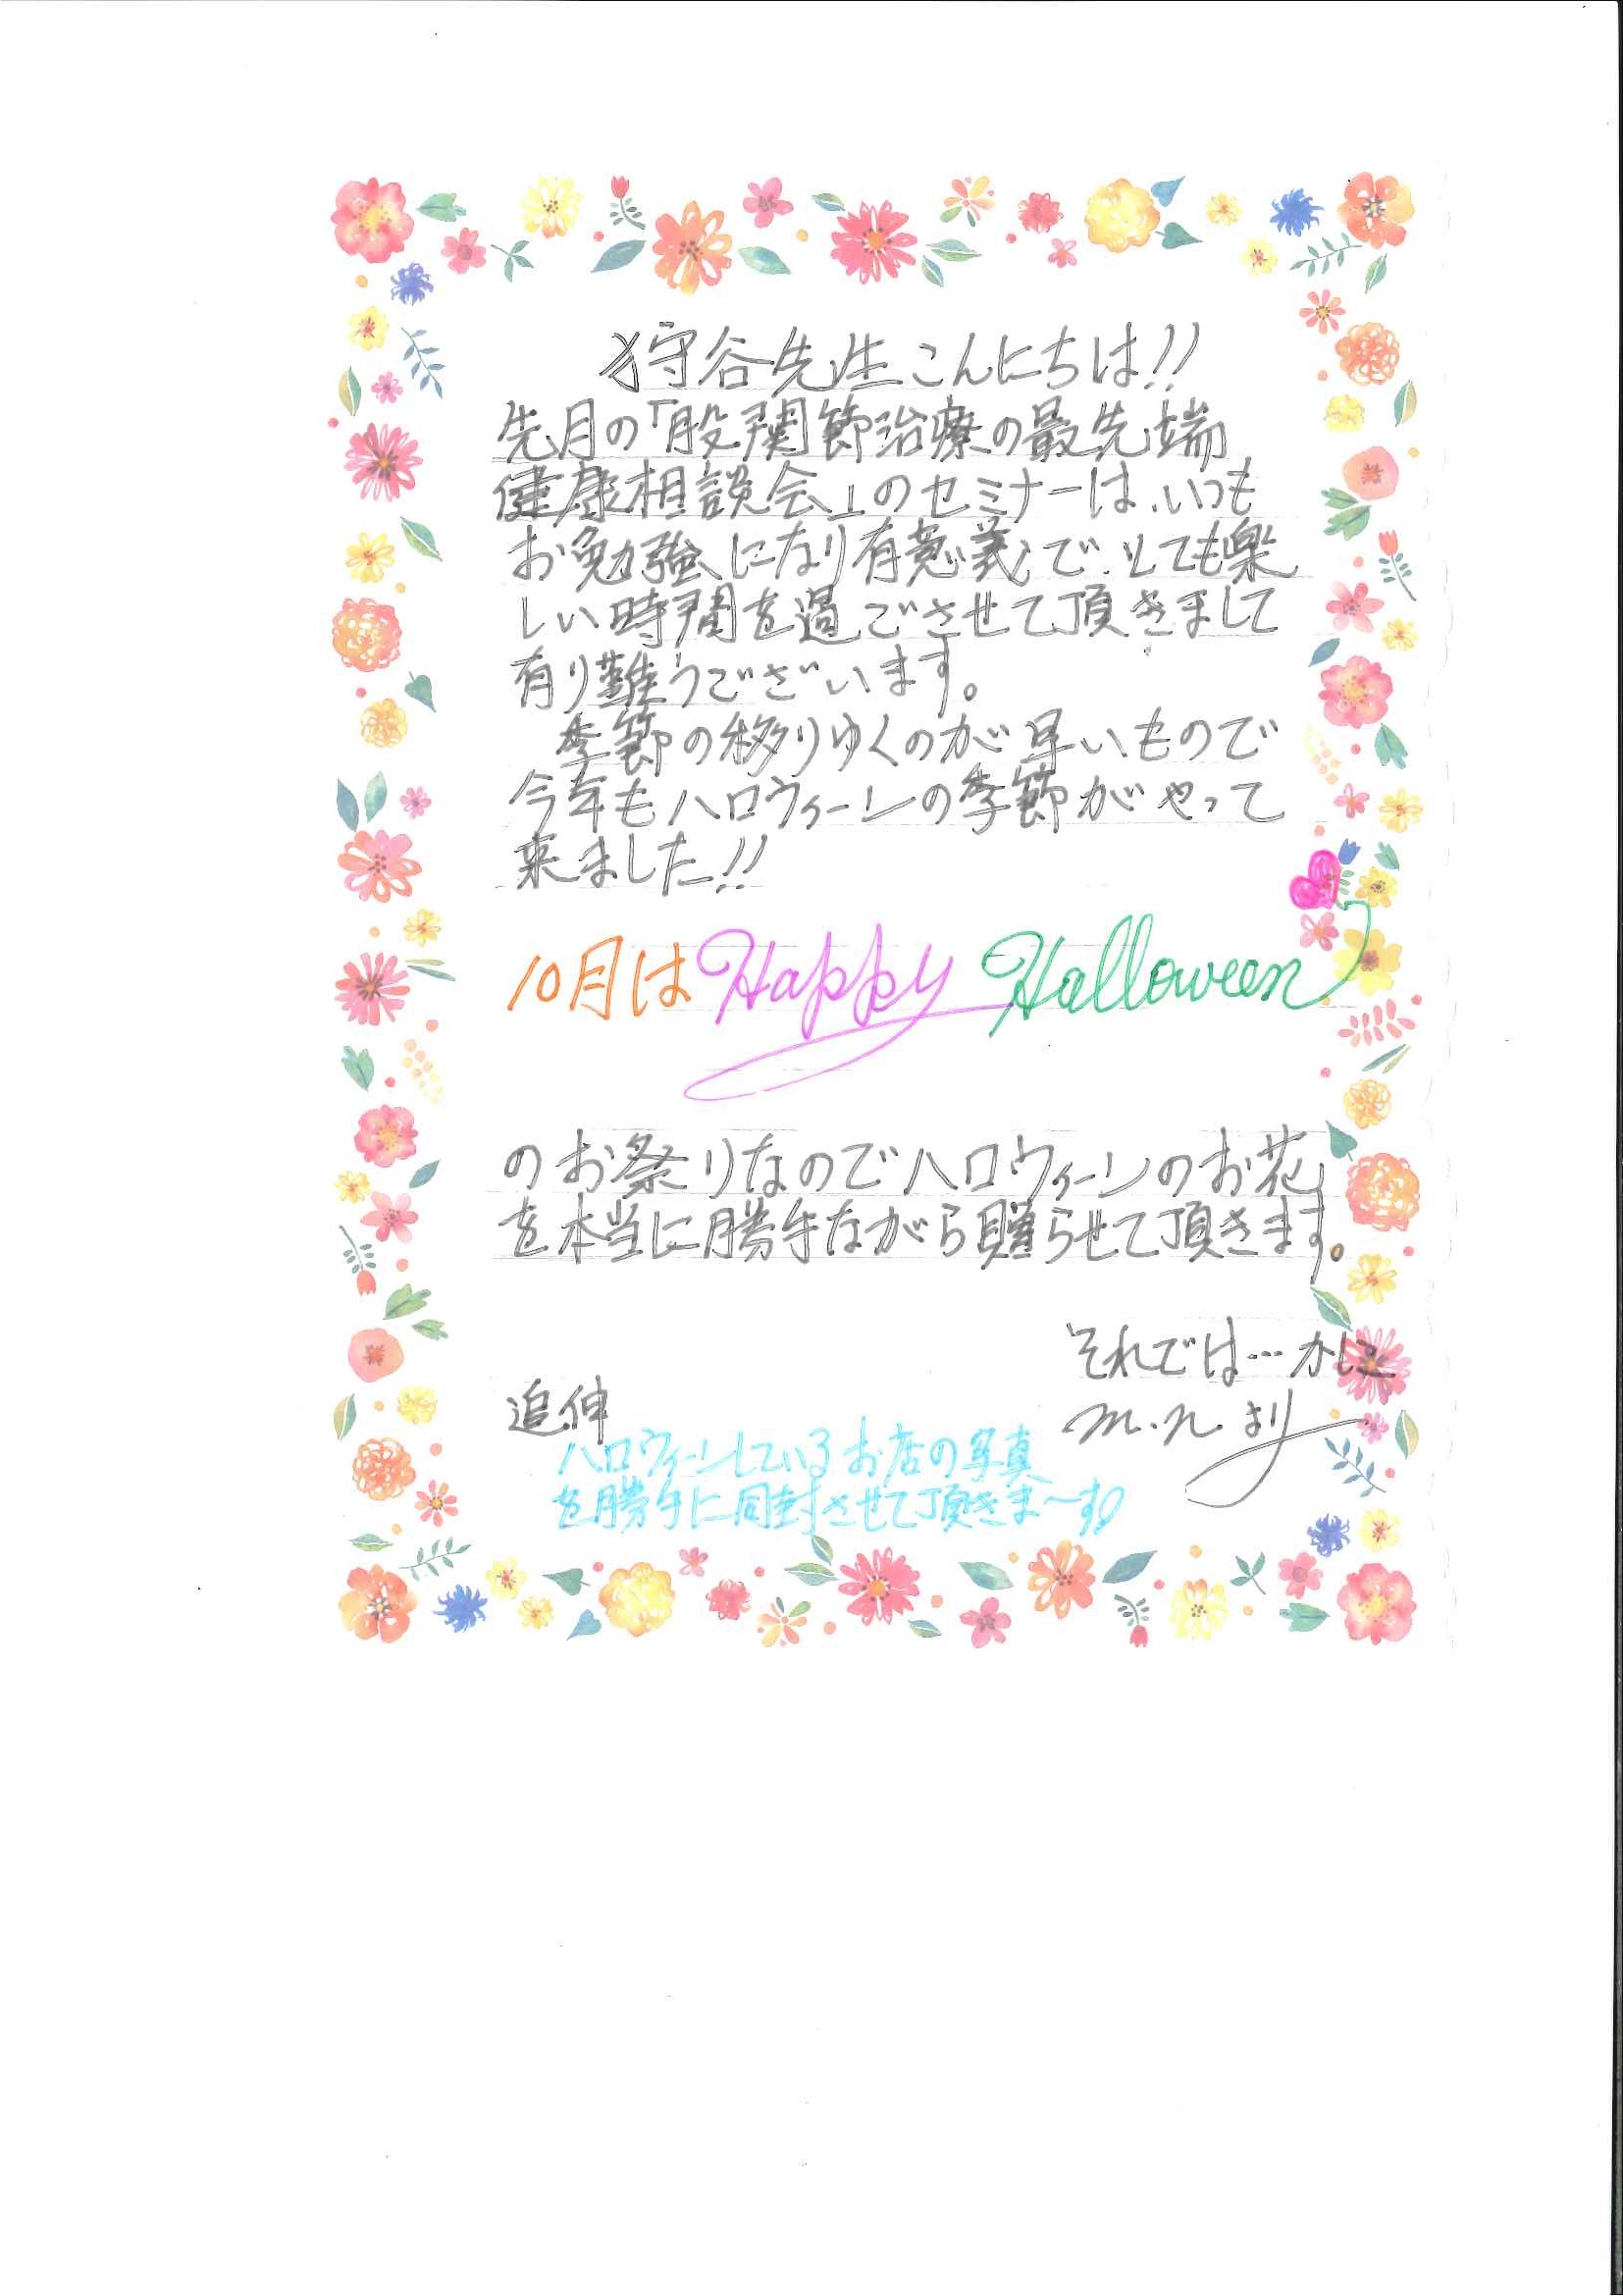 狩谷先生こんにちは!!
先月の「股関節治療の最先端
健康相談会」のセミナーは、いつも
お勉強になり有意義で、とても楽
しい時間を過ごさせて頂きまして
有り難うございます。
季節の移りゆくのが早いもので
今年もハロウィーンの季節がやって
来ました!!
10月はHappy Halloween
のお祭りなのでハロウィーンのお花
を本当に勝手ながら贈らせて頂きます。
それでは…かしこ
m.n.より
追伸
ハロウィーンしているお店の写真
を勝手に同封させて頂きま〜す!